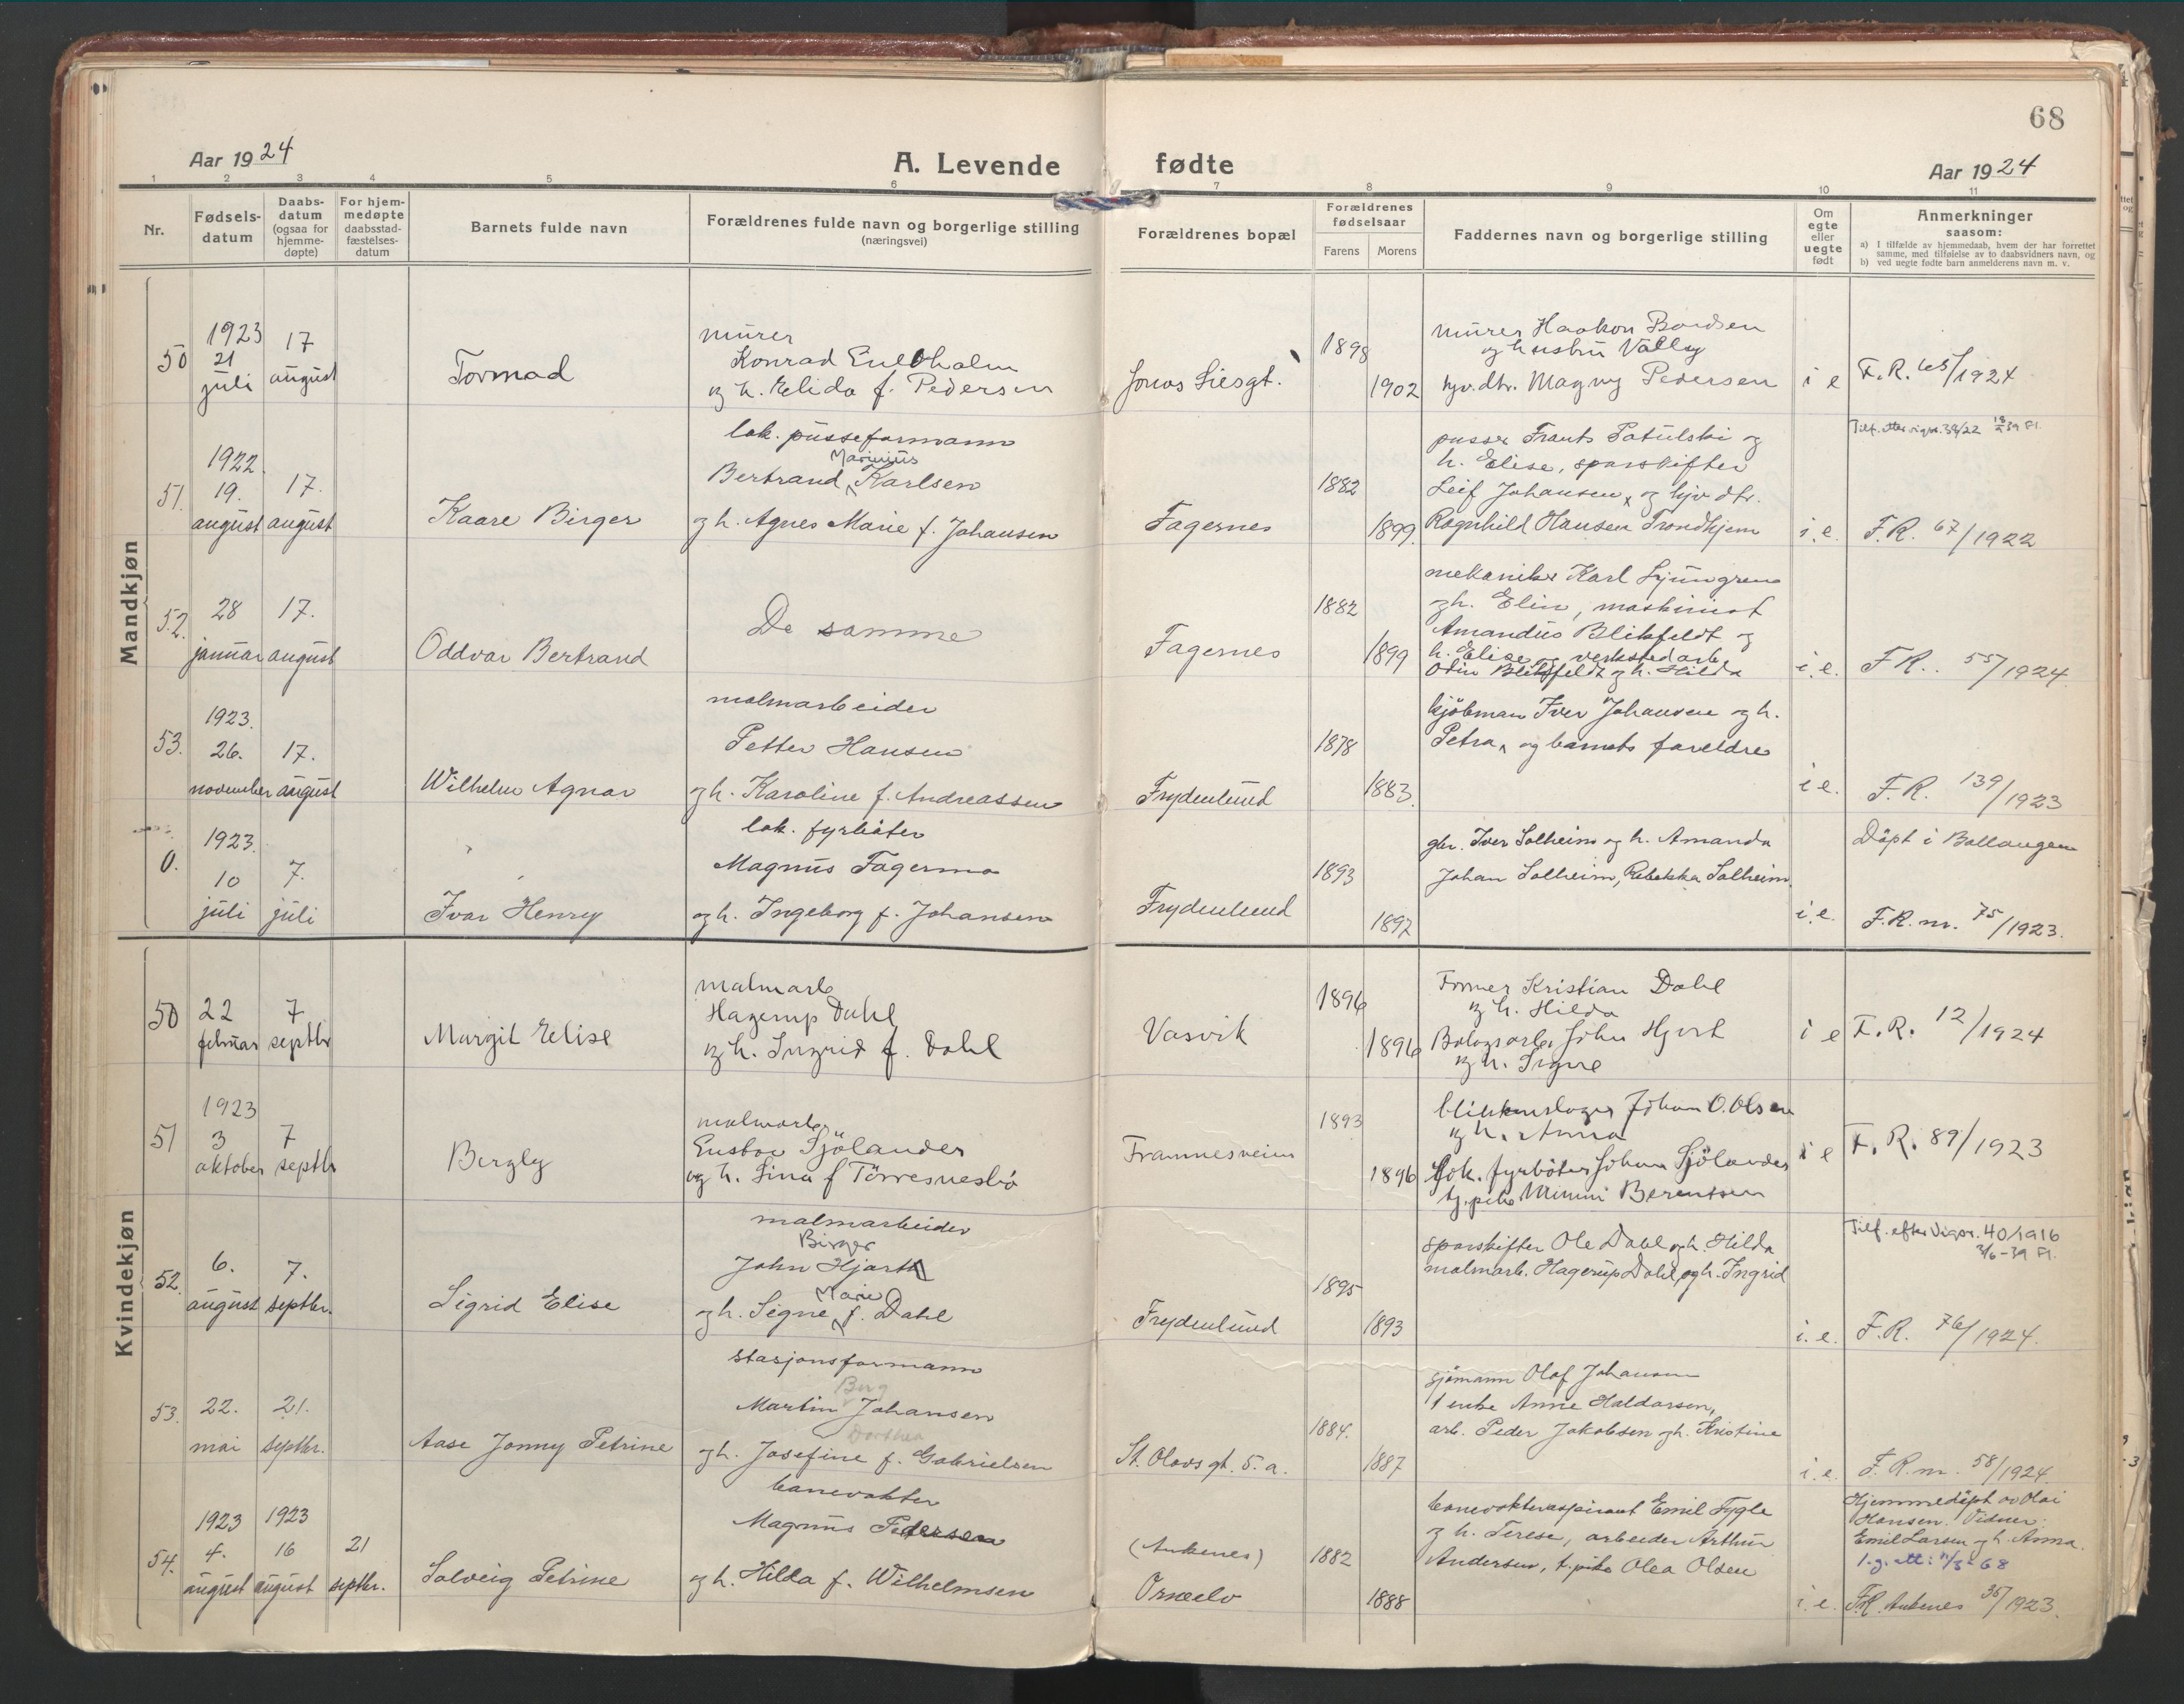 68
Aar 1924
A. Levende fødte
Aar 1924
1 2 3 4 5 6 7 8 9 10 11
Nr.
Fødsels-
datum
Daabs-
datum
(ogsaa for
hjemme-
døpte)
For hjem-
medøpte
daabsstad-
fæstelses-
datum
Barnets fulde navn
Forældrenes fulde navn og borgerlige stilling
(næringsvei)
Forældrenes bopæl
Forældrenes
fødselsaar
Farens Morens
Faddernes navn og borgerlige stilling
Om
egte
eller
uegte
født
Anmerkninger
saasom:
a) I tilfælde av hjemmedaab, hvem der har forrettet
samme, med tilføielse av to daabsvidners navn, og
b) ved uegte fødte barn anmelderens navn m. v.
Mandkjøn
50
1923
21
juli
17
august
Tormod
murer
Konrad
og h. Elida f. Pedersen
Jonas Liesgt.
1898
1902
murer Haakon
og hustru Vally
hjv. dtr. Magny Pedersen
i e
F.R. 65/1924
51.
1922.
19.
august
17.
august
Kaare Birger
lok. pusseformann
Marinius
Bertrand Karlsen
og h. Agnes Marie f. Johansen
Fagernes
1882
1899.
pusser Frants Patulski og
h. Elise, sporskifter
Leif Johansen, og hjv dtr.
Ragnhild Hansen Trondhjem
i. e.
Tilf. etter vigsr. 38/22
F.R. 67/1922
52.
28
januar
17.
august
Oddvar Bertrand
De samme
Fagernes
1882
1899
mekaniker Karl Ljungren
og h. Elin, maskinist
Amandus Blikfeldt og
h. Elise og verkstedarb.
Odin Blikfeldt og h. Hilda
i. e.
F.R. 55/1924.
53.
1923.
26.
november
17.
august
Wilhelm Agnar
malmarbeider
Petter Hansen
og h. Karoline f. Andreassen
Frydenlund
1878
1883.
kjöbman Iver Johansen og h.
Petra, og barnets foreldre
i e.
F.R. 139/1923
0.
1923.
10
juli
7.
juli
Ivar Henry
lok. fyrböter
Magnus Fagermo
og h. Ingeborg f. Johansen
Frydenlund
1893
1897
gbr. Iver Solheim og h. Amanda
Johan Solheim, Rebekka Solheim.
i. e.
Döpt i Ballangen
F.R. nr. 75/1923.
Kvindekjøn
50
22
februar
7
septbr
Margit Elise
malmarb
Hagerup Dahl
og h. Ingrid f. Dahl
Vasvik
1896
1896
Former Kristian Dahl
og h. Hilda
John Hjort
og h. Signe
i e
F.R. 12/1924
51
1923
3
oktober
7
septbr
Bergly
malmarb.
Gustav Sjölander
og h. Lina f Törresnesbö
Framnesveien
1893
1896
blikkenslager Johan O. Olsen
og h. Anna
Lok. fyrböter Johan Sjölander
tj. pike Mimmi Berentsen
i e
F.R. 89/1923
52.
6.
august
7.
septbr.
Sigrid Elise
malmarbeider
Birger
John Hjorth
Marie
og h. Signe f. Dahl
Frydenlund
1895
1893
sporskifter Ole Dahl og h. Hilda
malmarb. Hagerup Dahl og h. Ingrid
i. e.
Tilf. efter Vigsr. 40/1916
3/6-39 Fl.
F.R. 76/1924.
53.
22.
mai
21.
septbr.
Aase Jonny Petrine
stasjonsformann
Berg
Martin Johansen
Dorthea
og h. Josefine f. Gabrielsen
St. Olavs gt. 5. a.
1884.
1887
sjömann Olaf Johansen
enke Anne Haldorsen,
arb. Peder Jakobsen og h. Kristine
i. e.
F.R. nr. 58/1924
54.
1923
4.
august
1923
16
august
21
septbr.
Solveig Petrine
banevokter
Magnus Pedersen
og h. Hilda f. Wilhelmsen
(Ankenes)
Orneelv
1882
1888
banevokteraspirant Emil Fygle
og h. Terese, arbeider Arthur
Andersen, t. pike Olea Olsen
i. e.
Hjemmedöpt av Olai
Hansen. Vidner:
Emil Larsen og h. Anna.
1. g. att: 11/3-68
F.R. Ankenes 35/1923.